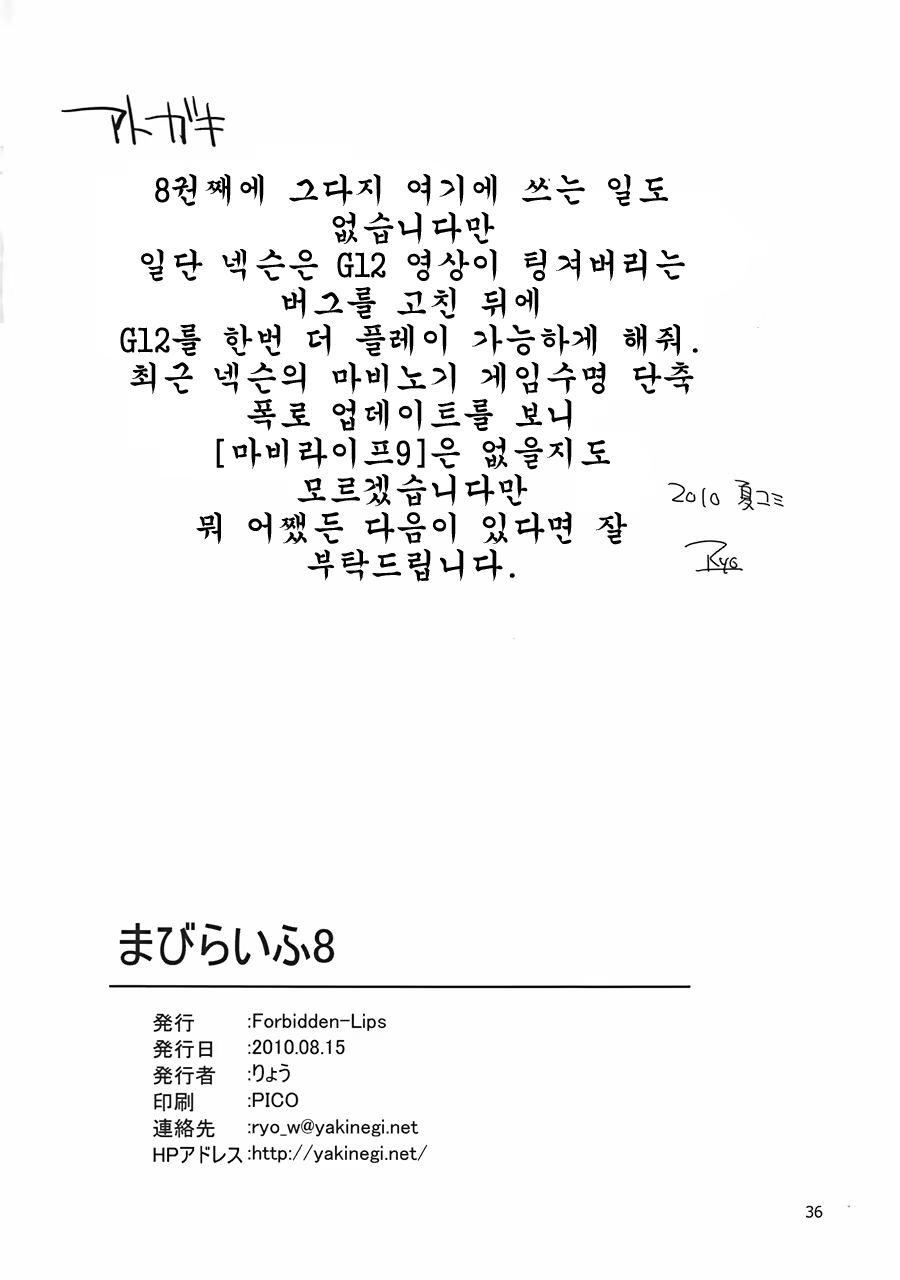 アトガキ
8권째에 그다지 여기에 쓰는 일도
없습니다만
일단 넥슨은 G12 영상이 팅겨버리는
버그를 고친 뒤에
G12를 한번 더 플레이 가능하게 해줘.
최근 넥슨의 마비노기 게임수명 단축
폭로 업데이트를 보니
[마비라이프9]은 없을지도
모르겠습니다만
뭐 어쨌든 다음이 있다면 잘
부탁드립니다.
2010 夏コミ
Ryo
まびらいふ8
発行 :Forbidden-Lips
発行日 :2010.08.15
発行者 :りょう
印刷 :PICO
連絡先 :ryo_w@yakinegi.net
HPアドレス:http://yakinegi.net/
36